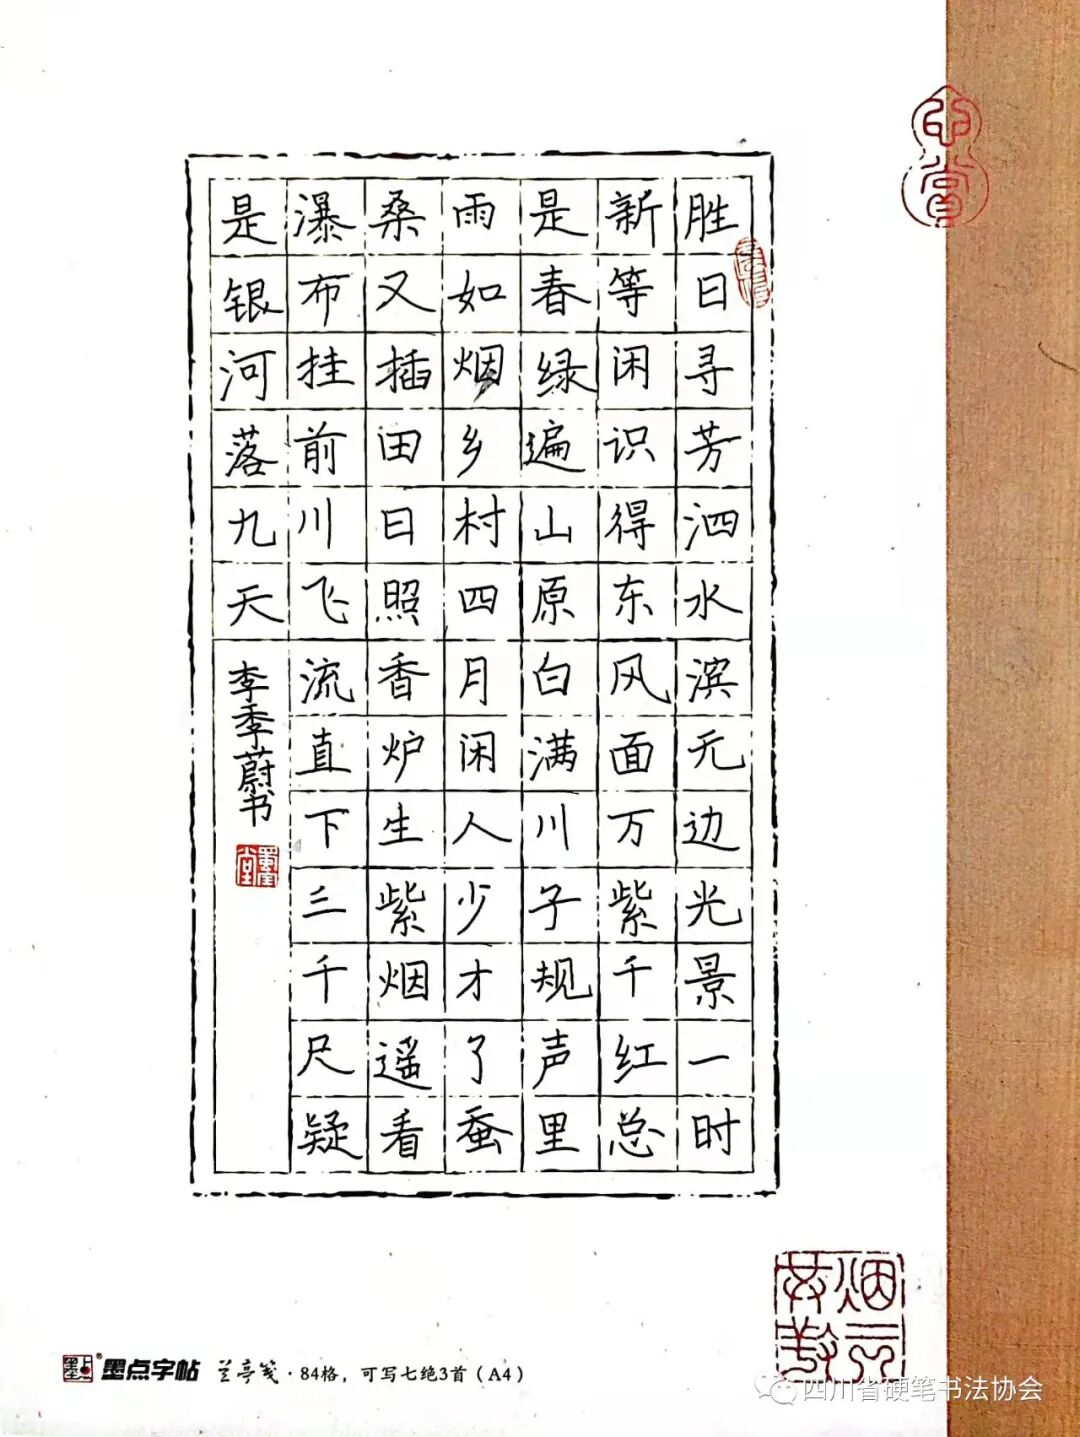 胜日寻芳泗水滨无边光景一时
新等闲识得东风面万紫千红总
是春绿遍山原白满川子规声里
雨如烟乡村四月闲人少才了蚕
桑又插田日照香炉生紫烟遥看
瀑布挂前川飞流直下三千尺疑
是银河落九天
李季蔚书
墨点字帖 兰亭笺·84格,可写七绝3首(A4)
四川省硬笔书法协会